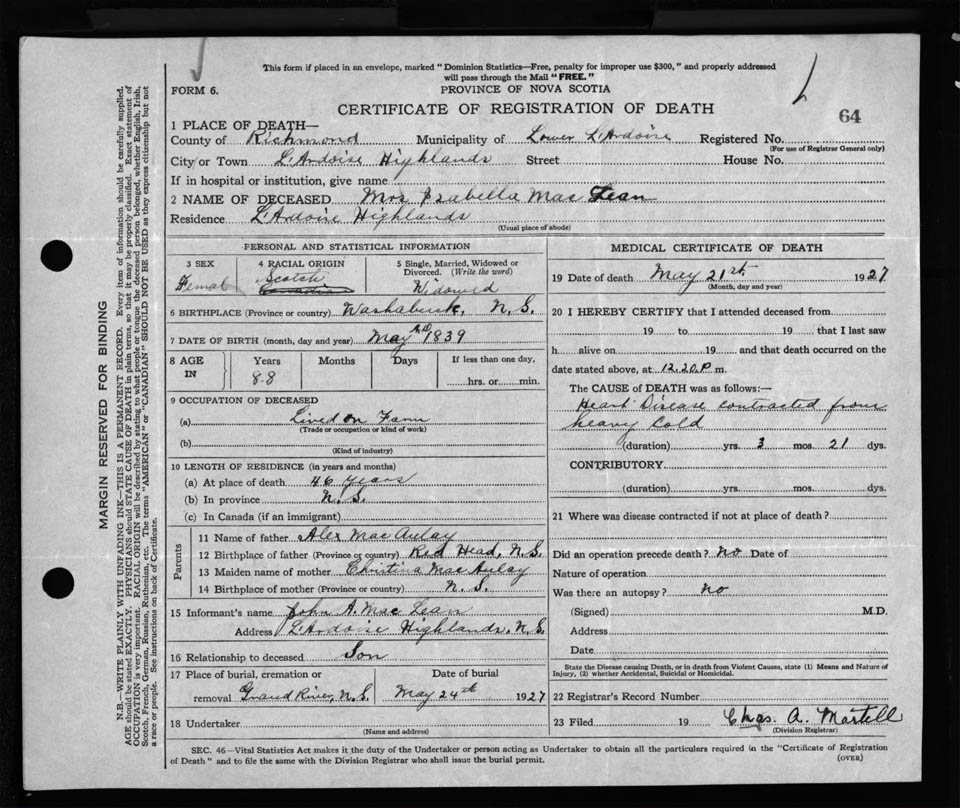 This form if placed in an envelope, marked "Dominion Statistics—Free, penalty for improper use $300," and properly addressed
will pass through the Mail "FREE."
FORM 6.
PROVINCE OF NOVA SCOTIA
CERTIFICATE OF REGISTRATION OF DEATH
64
1 PLACE OF DEATH—
County of Richmond Municipality of Lower L'Ardoise Registered No.
(For use of Registrar General only)
City or Town L'Ardoise Highlands Street House No.
If in hospital or institution, give name
2 NAME OF DECEASED Mrs Isabella Mac Lean
Residence L'Ardoise Highlands
(Usual place of abode)
PERSONAL AND STATISTICAL INFORMATION
3 SEX 4 RACIAL ORIGIN 5 Single, Married, Widowed or Divorced. (Write the word)
Femal Scotch Canadian Widowed
6 BIRTHPLACE (Province or country) Washabuck, N.S.
7 DATE OF BIRTH (month, day and year) May AD 1839
8 AGE IN Years Months Days If less than one day,
88 hrs. or min.
9 OCCUPATION OF DECEASED
(a) Lived on Farm
(Trade or occupation or kind of work)
(b)
(Kind of industry)
10 LENGTH OF RESIDENCE (in years and months)
(a) At place of death 46 years
(b) In province N.S.
(c) In Canada (if an immigrant)
Parents
11 Name of father Alex Mac Aulay
12 Birthplace of father (Province or country) Red Head, N.S.
13 Maiden name of mother Christina Mac Aulay
14 Birthplace of mother (Province or country) N.S.
15 Informant's name John A. Mac Lean
Address L'Ardoise Highlands, N.S.
16 Relationship to deceased Son
17 Place of burial, cremation or removal Grand River, N.S. Date of burial May 24th 1927
18 Undertaker
(Name and address)
MEDICAL CERTIFICATE OF DEATH
19 Date of death May 21st. 1927
(Month, day and year)
20 I HEREBY CERTIFY that I attended deceased from
19 to 19 that I last saw
h alive on 19 and that death occurred on the
date stated above, at 12.20 P m.
The CAUSE of DEATH was as follows:—
Heart Disease contracted from
heavy Cold
(duration) yrs. 3 mos. 21 dys.
CONTRIBUTORY
(duration) yrs. mos. dys.
21 Where was disease contracted if not at place of death?
Did an operation precede death? no Date of
Nature of operation
Was there an autopsy? no
(Signed) M.D.
Address
Date
State the Disease causing Death, or in death from Violent Causes, state (1) Means and Nature of
Injury, (2) whether Accidental, Suicidal or Homicidal.
22 Registrar's Record Number
23 Filed 19 Chas. A. Martell
(Division Registrar)
SEC. 46—Vital Statistics Act makes it the duty of the Undertaker or person acting as Undertaker to obtain all the particulars required in the "Certificate of Registration
of Death" and to file the same with the Division Registrar who shall issue the burial permit.
(OVER)
MARGIN RESERVED FOR BINDING
N.B.—WRITE PLAINLY WITH UNFADING INK—THIS IS A PERMANENT RECORD. Every item of information should be carefully supplied.
AGE should be stated EXACTLY. PHYSICIANS should STATE CAUSE OF DEATH in plain terms, so that it may be properly classified. Exact statement of
OCCUPATION is very important. RACIAL ORIGIN will be described by stating to what people or tongue the deceased person belonged, whether English, Irish,
Scotch, French, German, Russian, Ruthenian, etc. The terms "AMERICAN" or "CANADIAN" SHOULD NOT BE USED as they express citizenship but not
a race or people. See instructions on back of Certificate.